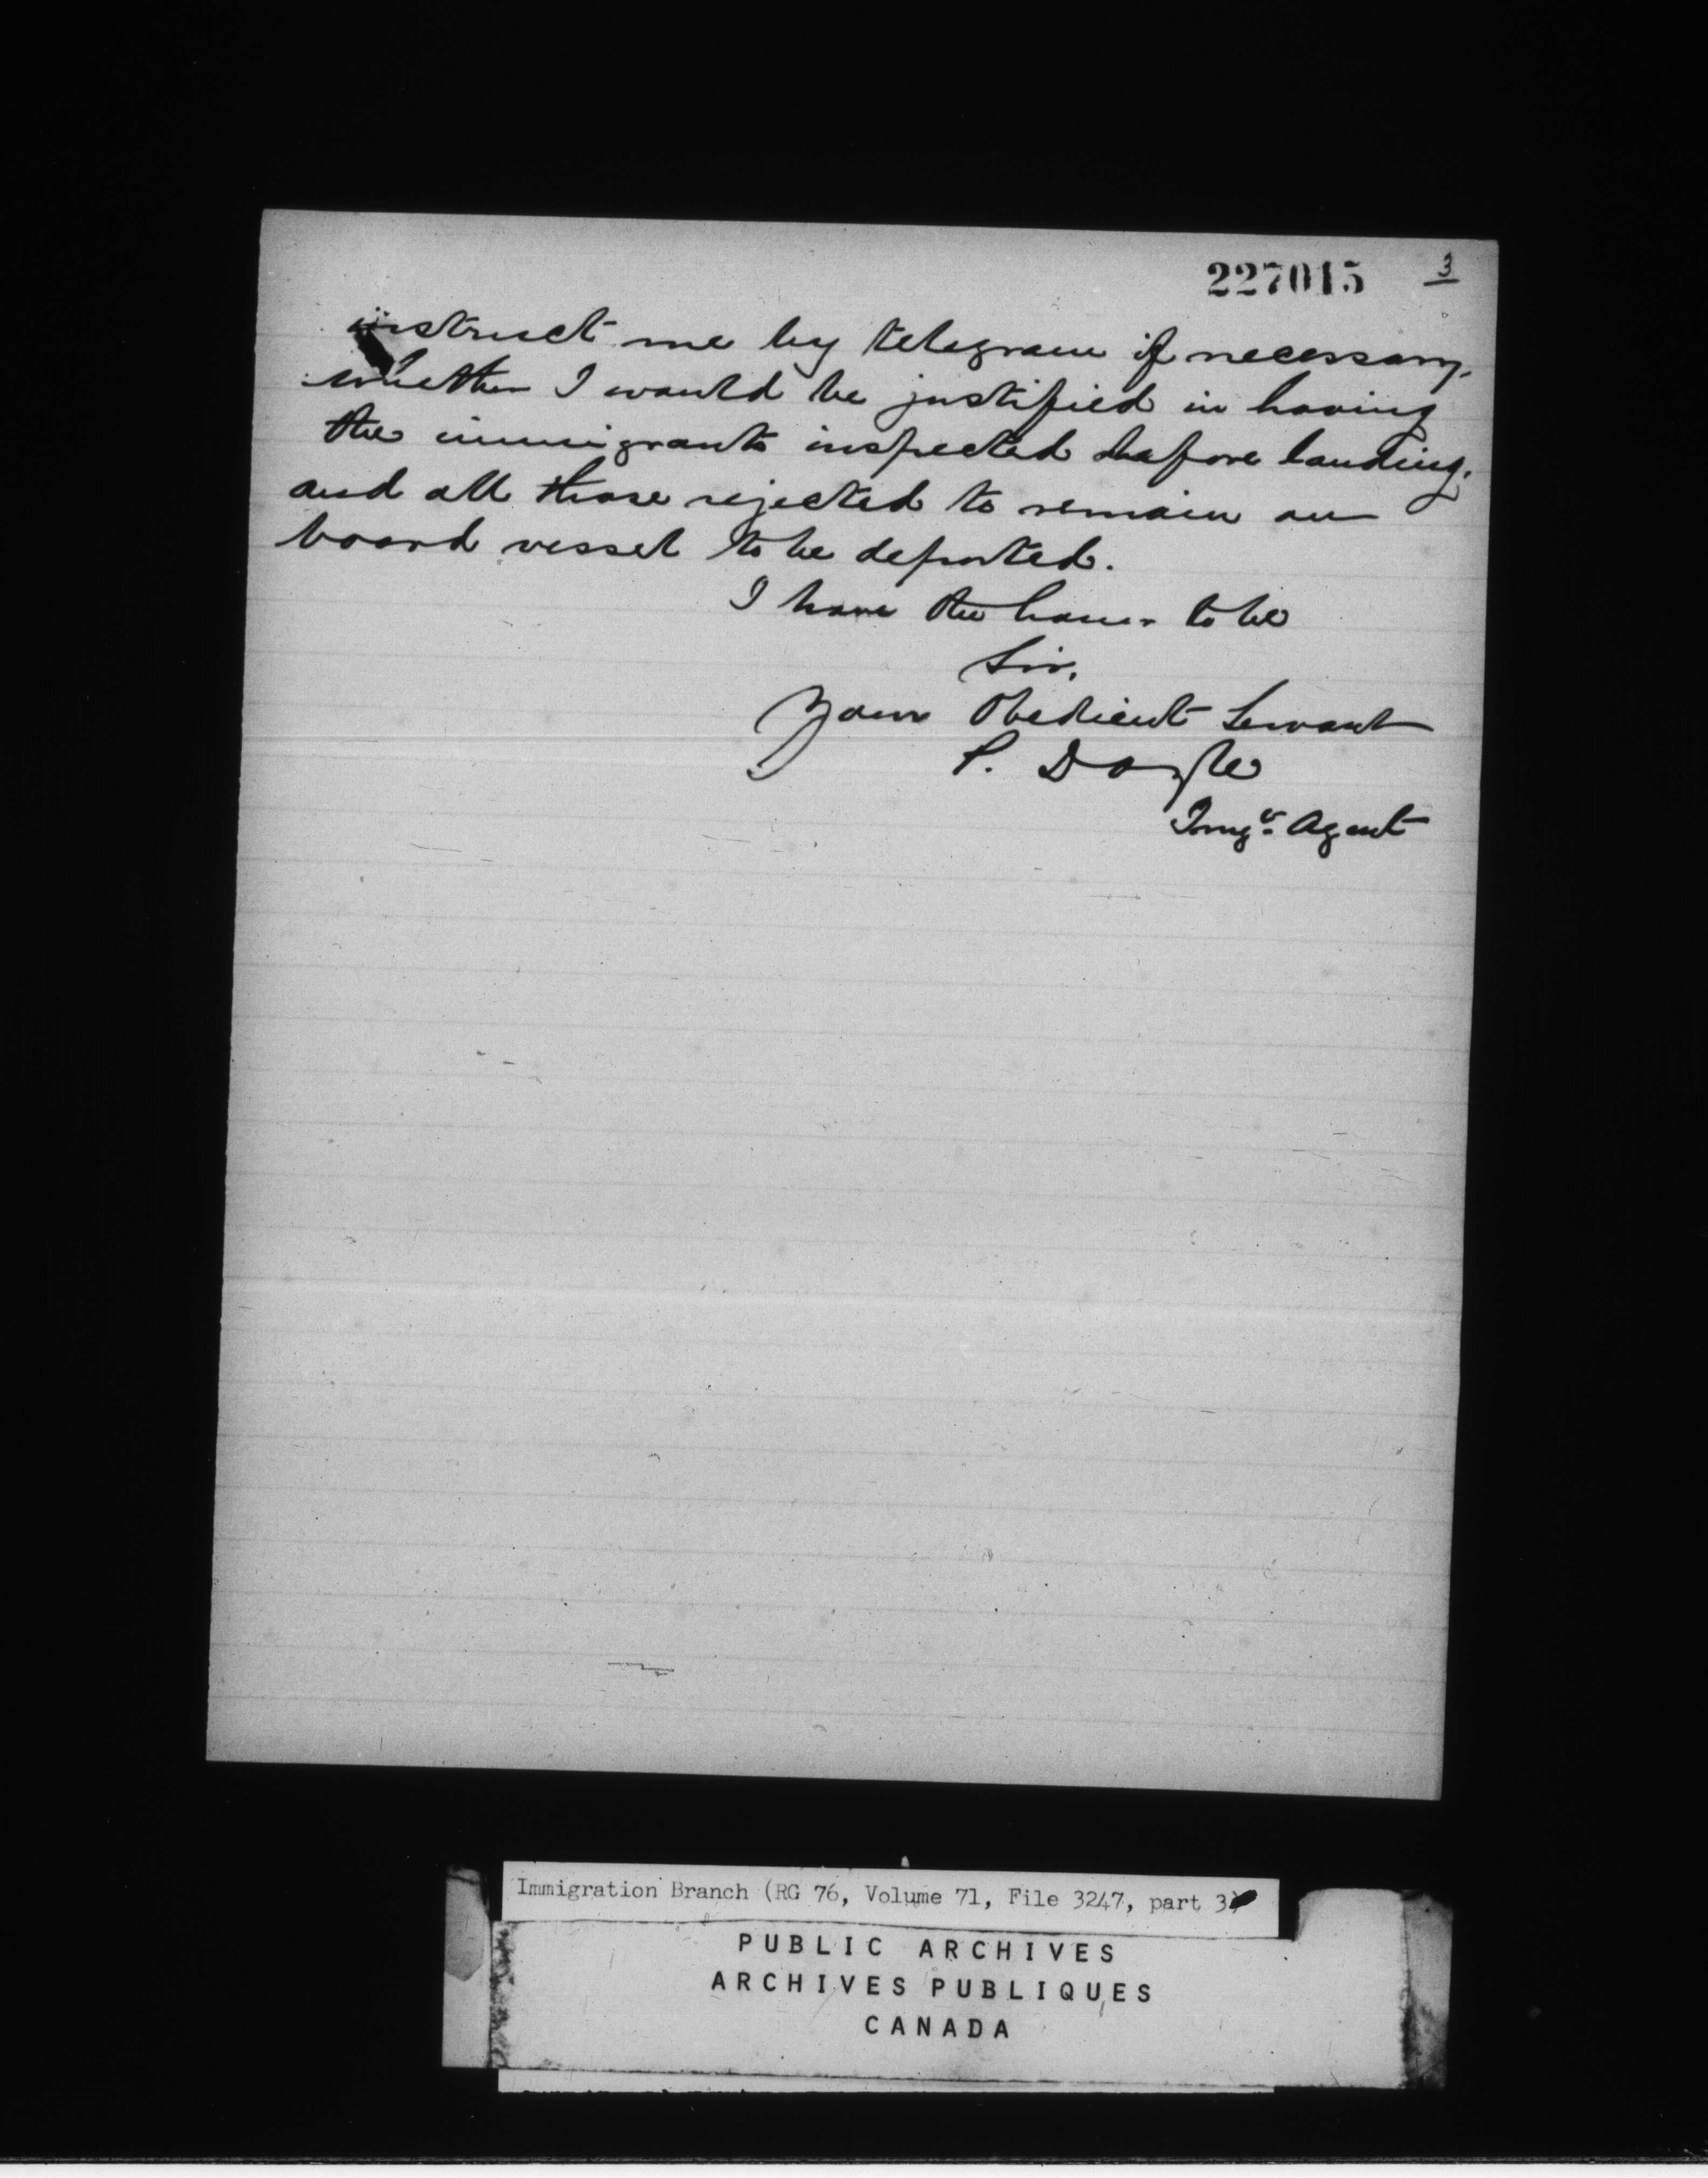 227015 3
instruct me by telegram if necessary,
whether I would be justified in having
the immigrants inspected before landing,
and all those rejected to remain on
board vessel to be deported.
I have the honor to be
Sir,
Your Obedient Servant
P. Doyle
Imgn. Agent
Immigration Branch (RG 76, Volume 71, File 3247, part 3)
PUBLIC ARCHIVES
ARCHIVES PUBLIQUES
CANADA